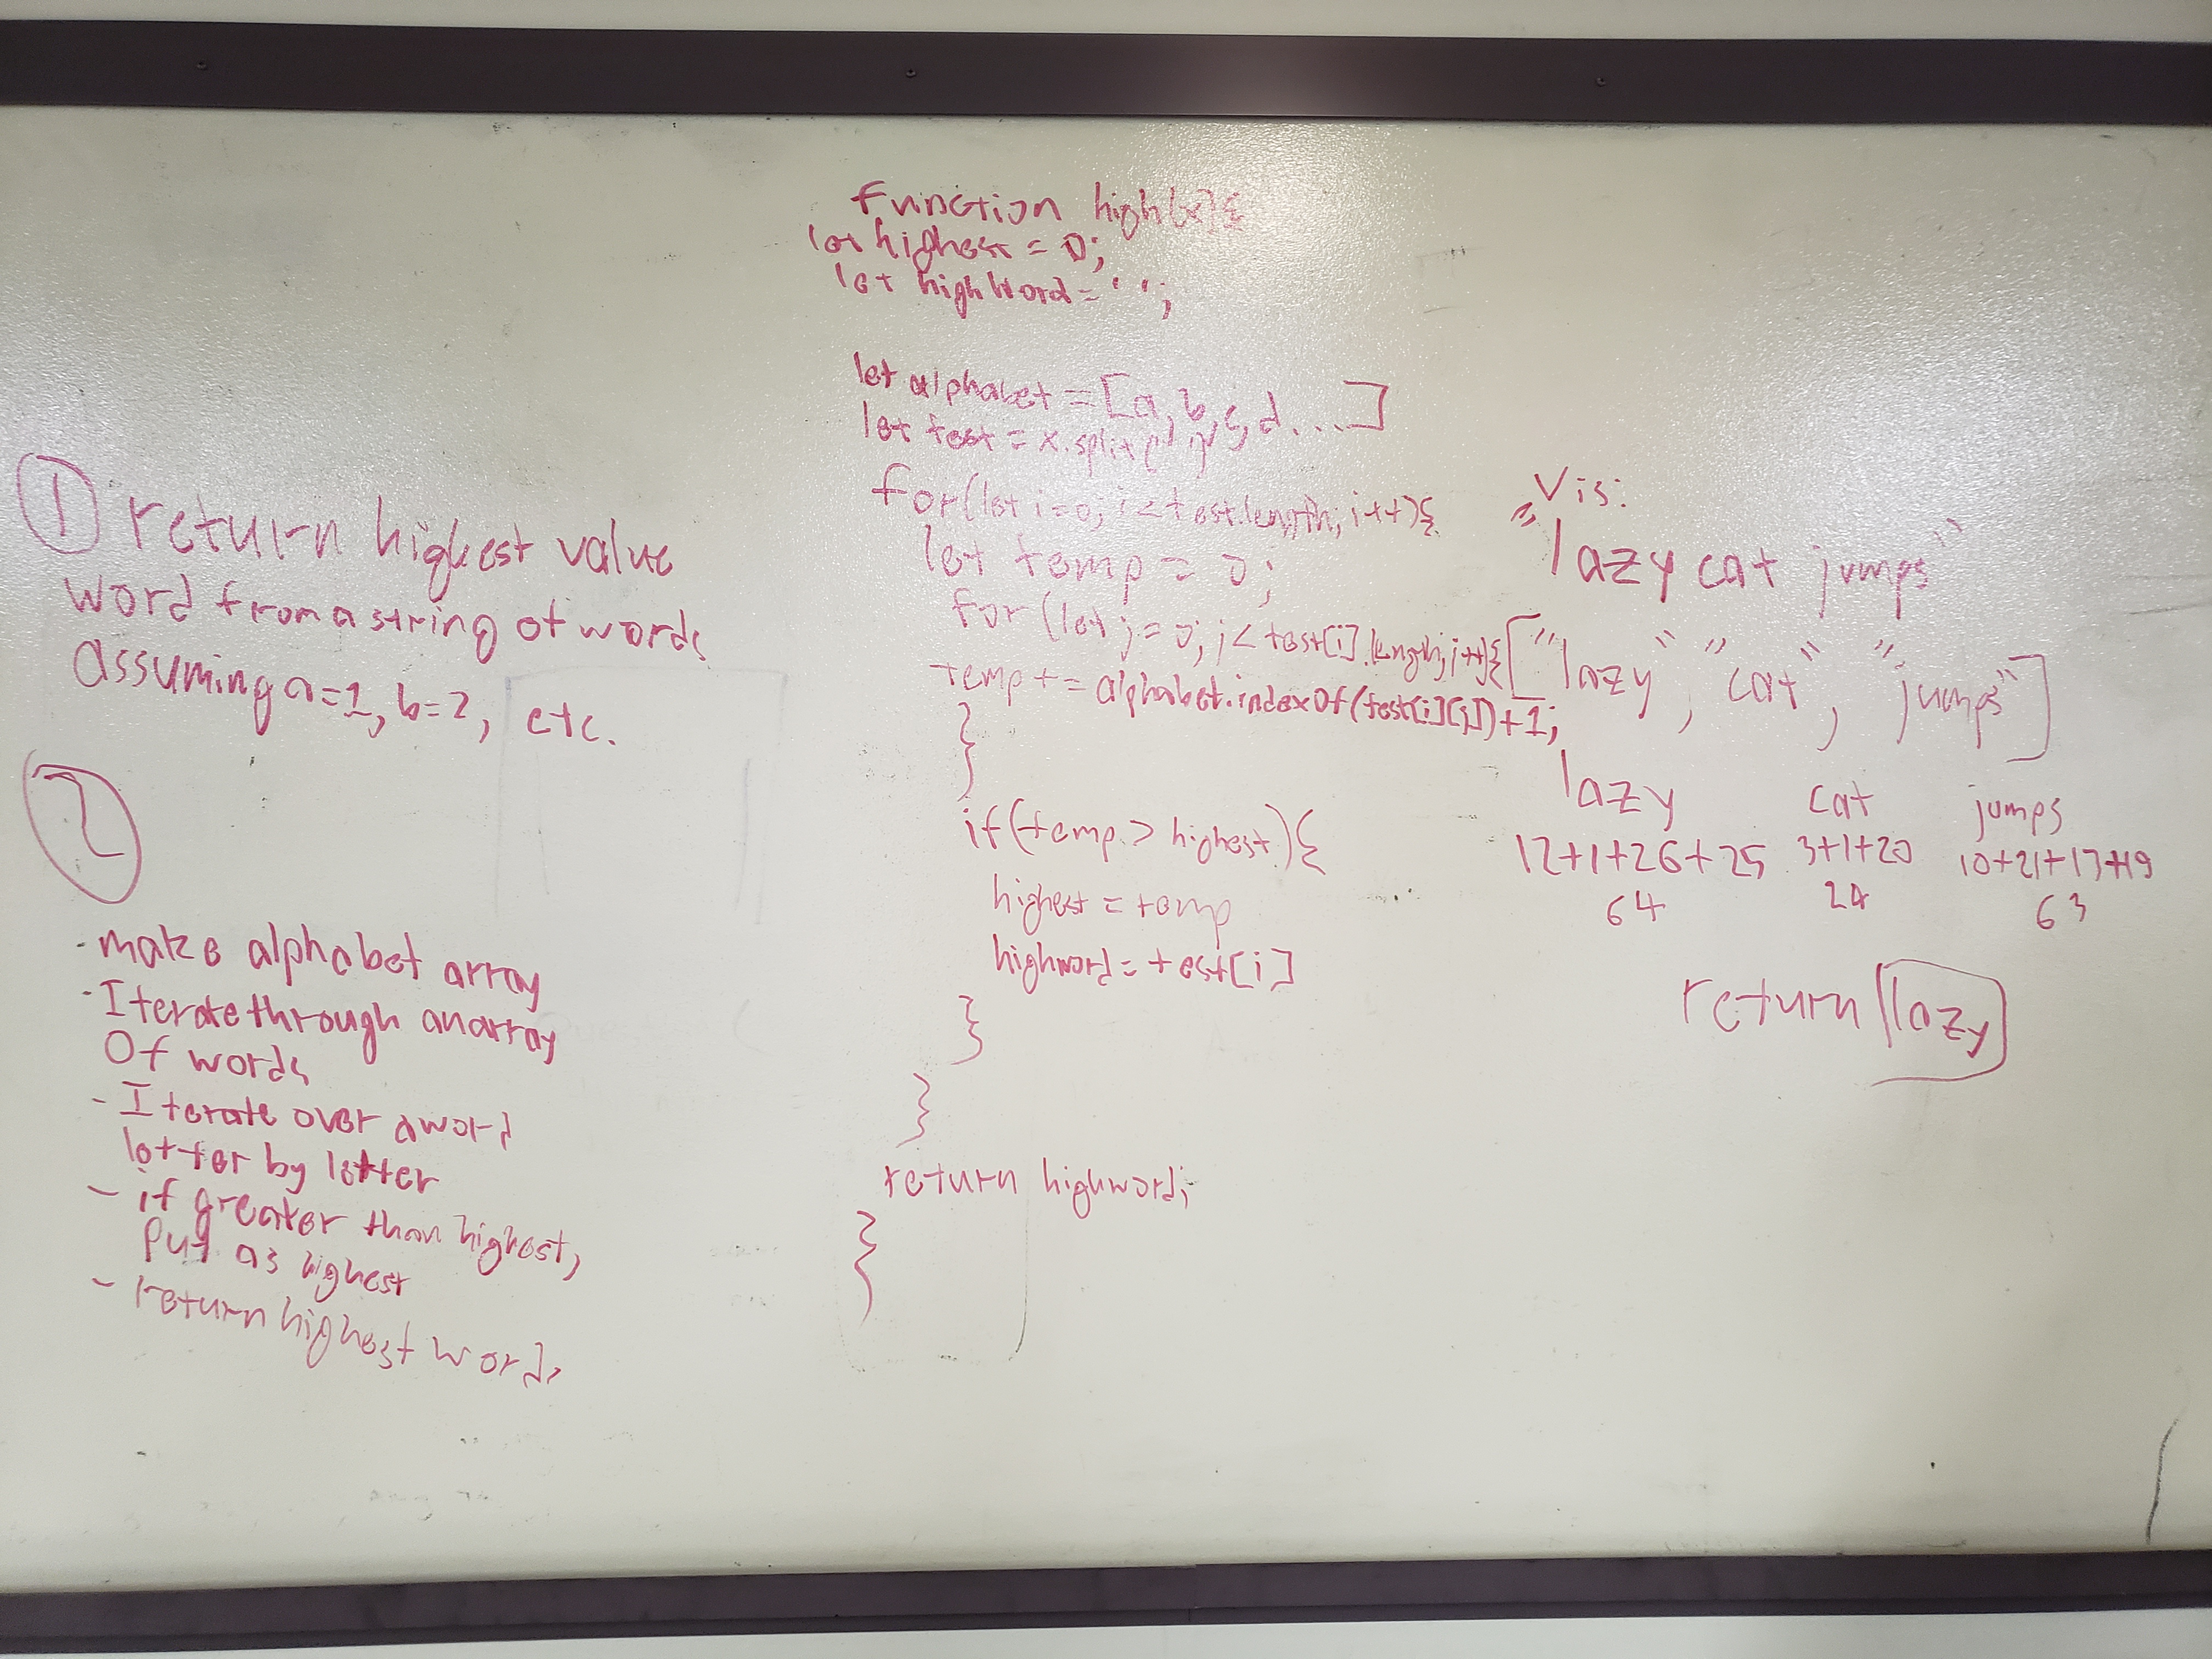 ① return highest value
word from a string of words
assuming a=1, b=2, etc.
②
- make alphabet array
- Iterate through an array
Of words
- Iterate over a word
letter by letter
- if greater than highest,
Put as highest
- return highest word.
function high(x){
let highest = 0;
let highWord = ' ';
let alphabet = [a, b, c, d....]
let test = x.split(' ')
for(let i=0; i<test.length; i++){
let temp = 0;
for (let j=0; j<test[i].length; j++){
temp += alphabet.indexOf(test[i][j])+1;
}
if(temp > highest){
highest = temp
highword = test[i]
}
}
return highword;
}
Vis:
"lazy cat jumps"
["lazy", "cat", "jumps"]
lazy cat jumps
12+1+26+25 3+1+20 10+21+13+19
64 24 63
return lazy